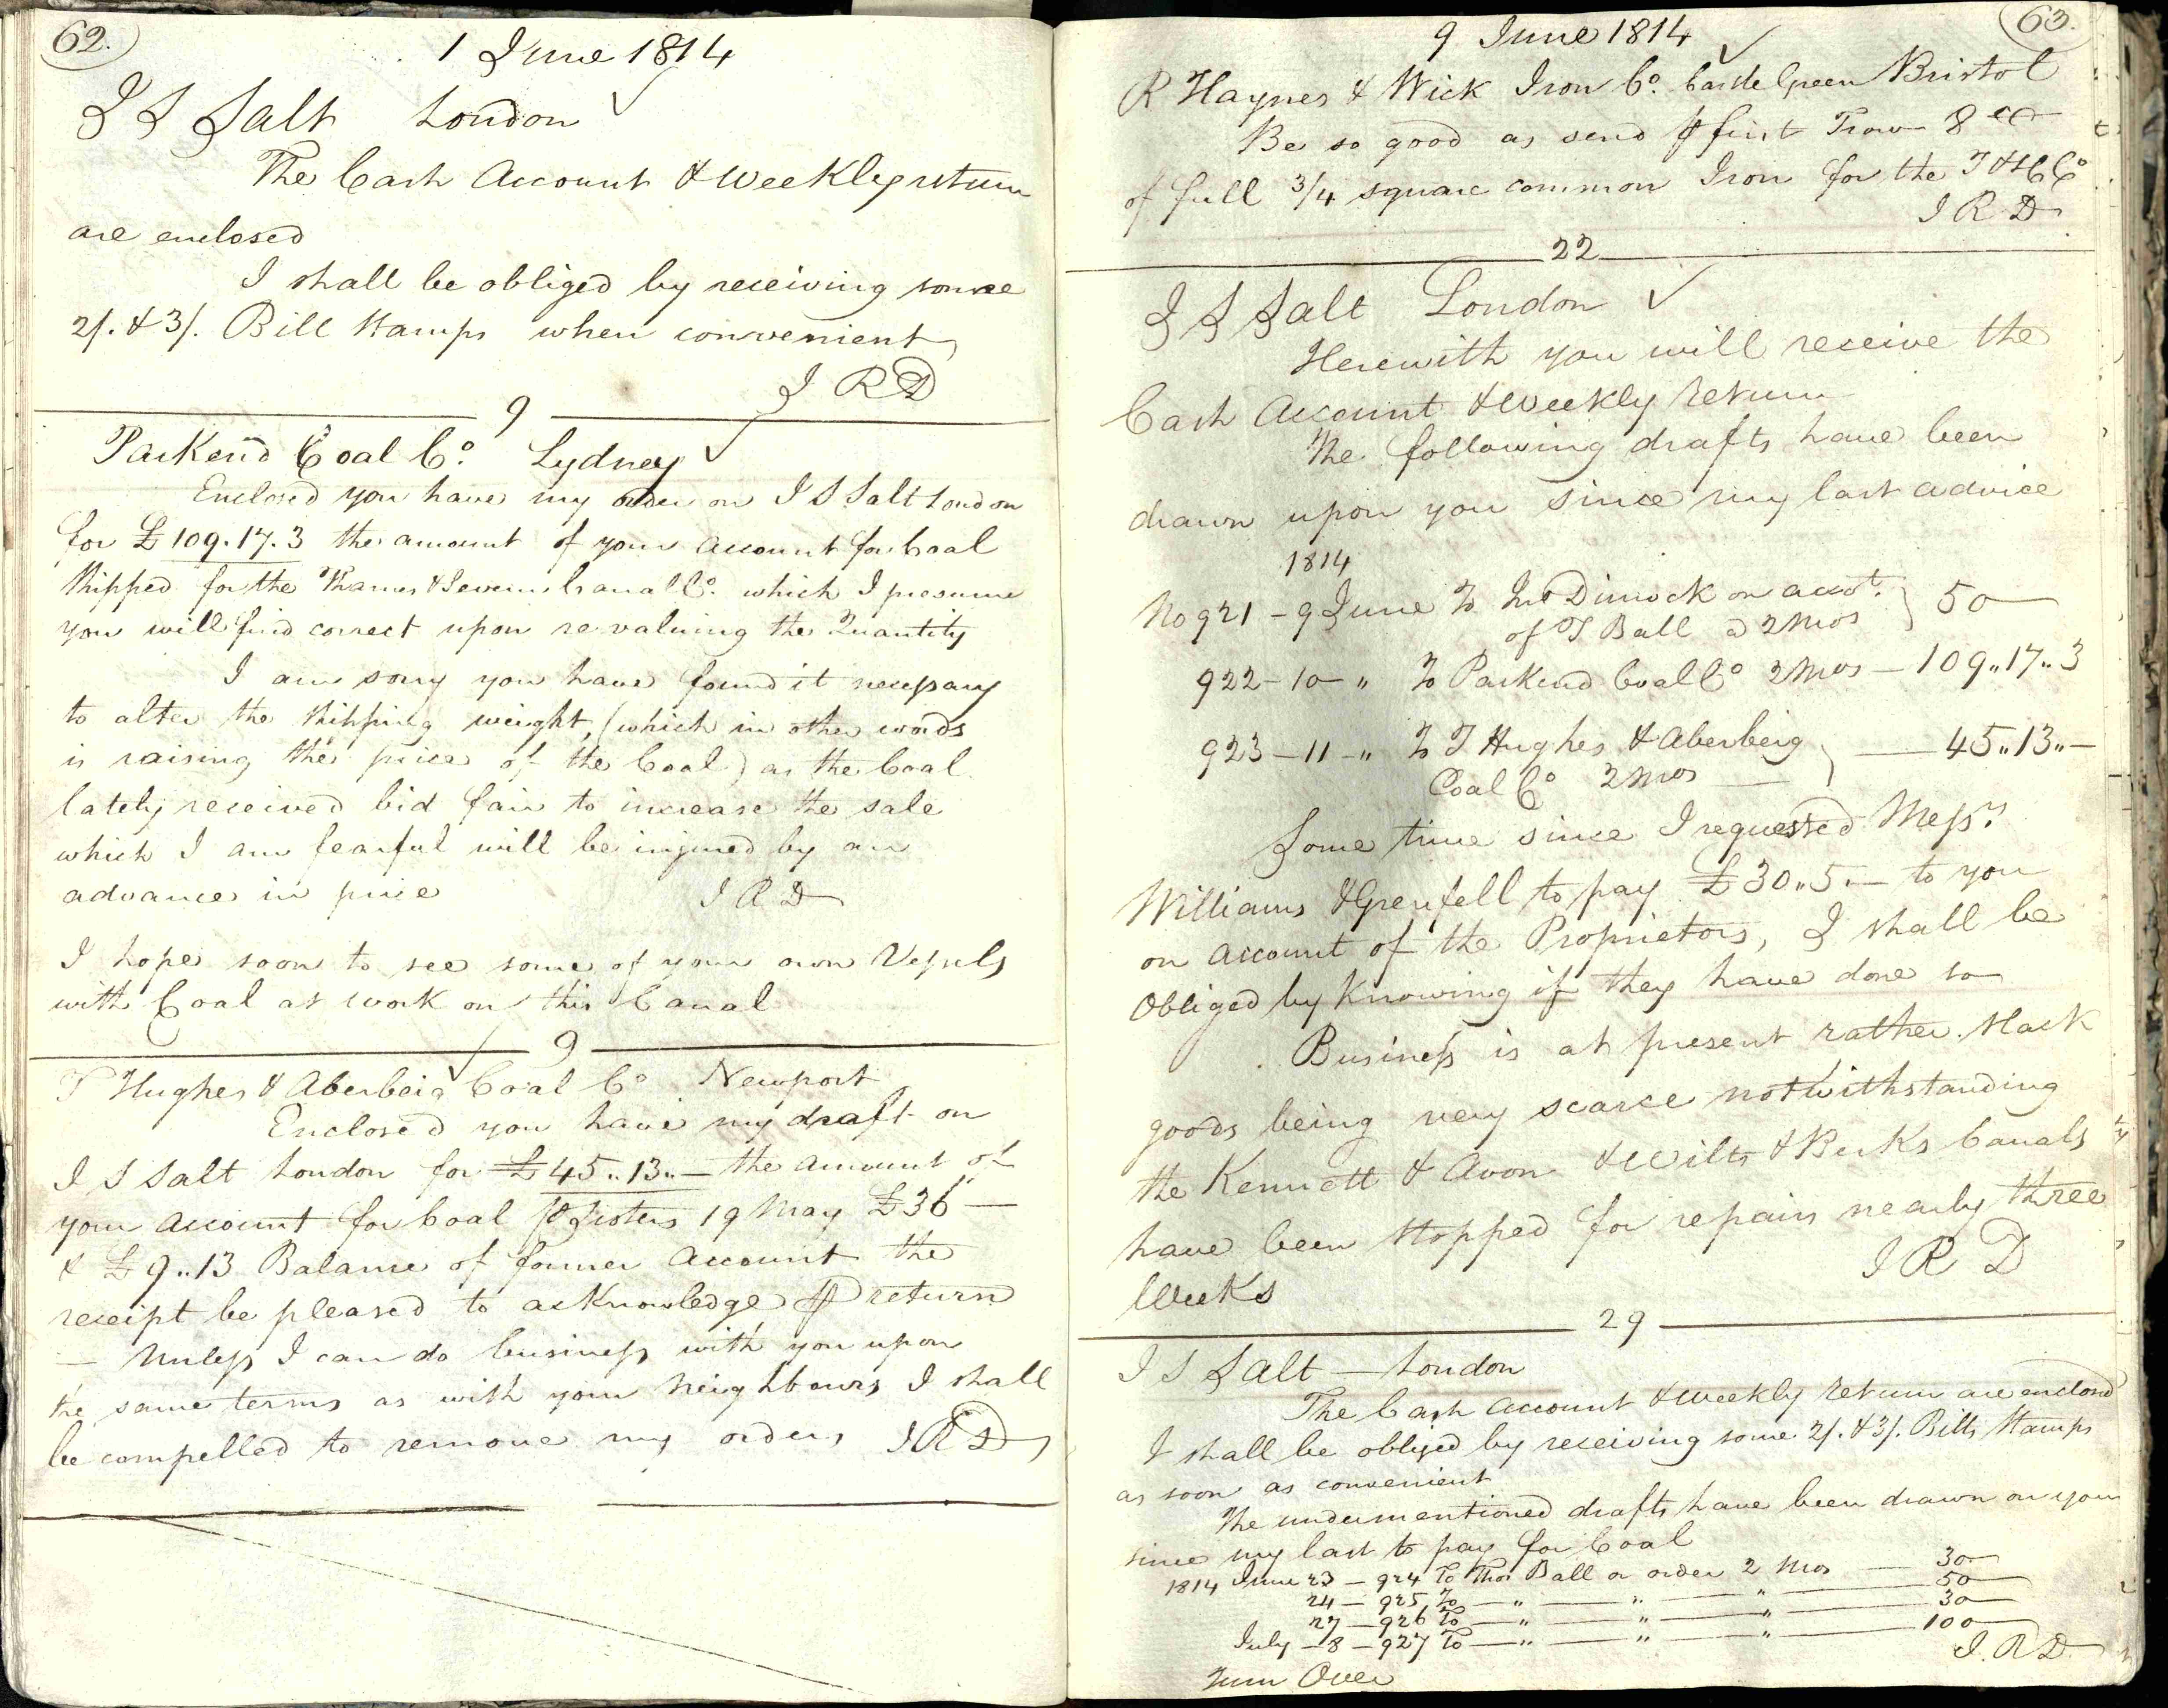 62.
1 June 1814
I S Salt London
The Cash Account & Weekly return
are enclosed
I shall be obliged by receiving some
2/. & 3/. Bill Stamps when convenient
I R D
9
Parkend Coal Co. Lydney
Enclosed you have my order on I S Salt London
for £109.17.3 the amount of your Account for Coal
shipped for the Thames & Severn Canal Co. which I presume
you will find correct upon revaluing the Quantity
I am sorry you have found it necessary
to alter the shipping weight, (which in other words
is raising the price of the Coal) as the Coal
lately received bid fair to increase the sale
which I am fearful will be injured by an
advance in price I R D
I hope soon to see some of your own Vessels
with Coal at work on this Canal
9
T Hughes & Aberbeig Coal Co Newport
Enclosed you have my draft on
I S Salt London for £45..13..— the amount of
your Account for Coal ⅌ Sisters 19 May £36—
& £9..13 Balance of former Account the
receipt be pleased to acknowledge ⅌ return
— Unless I can do business with you upon
the same terms as with your Neighbours I shall
be compelled to remove my orders I R D
63.
9 June 1814
R Haynes & Wick Iron Co. Castle Green Bristol
Be so good as send ⅌ first Trow 8
of full 3/4 square common Iron for the T & S C Co
I R D
22
I S Salt London
Herewith you will receive the
Cash Account & Weekly Return
The following drafts have been
drawn upon you since my last advice
1814
No 921 - 9 June To Jno Dimock on accot. } 50—
of T Ball a 2 Mos
922 - 10 - " To Parkend Coal Co 2 Mos — 109..17..3
923 - 11 - " To T Hughes & Aberbeig } — 45..13..—
Coal Co 2 mos —
Some time since I requested Messrs
Williams & Grenfell to pay £30..5..— to you
on account of the Proprietors, I shall be
Obliged by Knowing if they have done so
Business is at present rather slack
goods being very scarce notwithstanding
the Kennett & Avon & Wilts & Berks Canals
have been stopped for repairs nearly three
Weeks I R D
29
I S Salt — London
The Cash Account & Weekly Return are enclosd
I shall be obliged by receiving some 2/. & 3/. Bills Stamps
as soon as convenient
The undermentioned drafts have been drawn on you
since my last to pay for Coal
1814 June 23 — 924 To Thos Ball or order 2 Mos — 30—
24 — 925 To — " — " — " — 50—
27 — 926 To — " — " — " — 30—
July - 8 — 927 To — " — " — " — 100—
I. R D
Turn Over